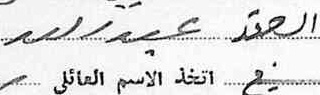 عبد الله
في اتخذ الاسم العائلي